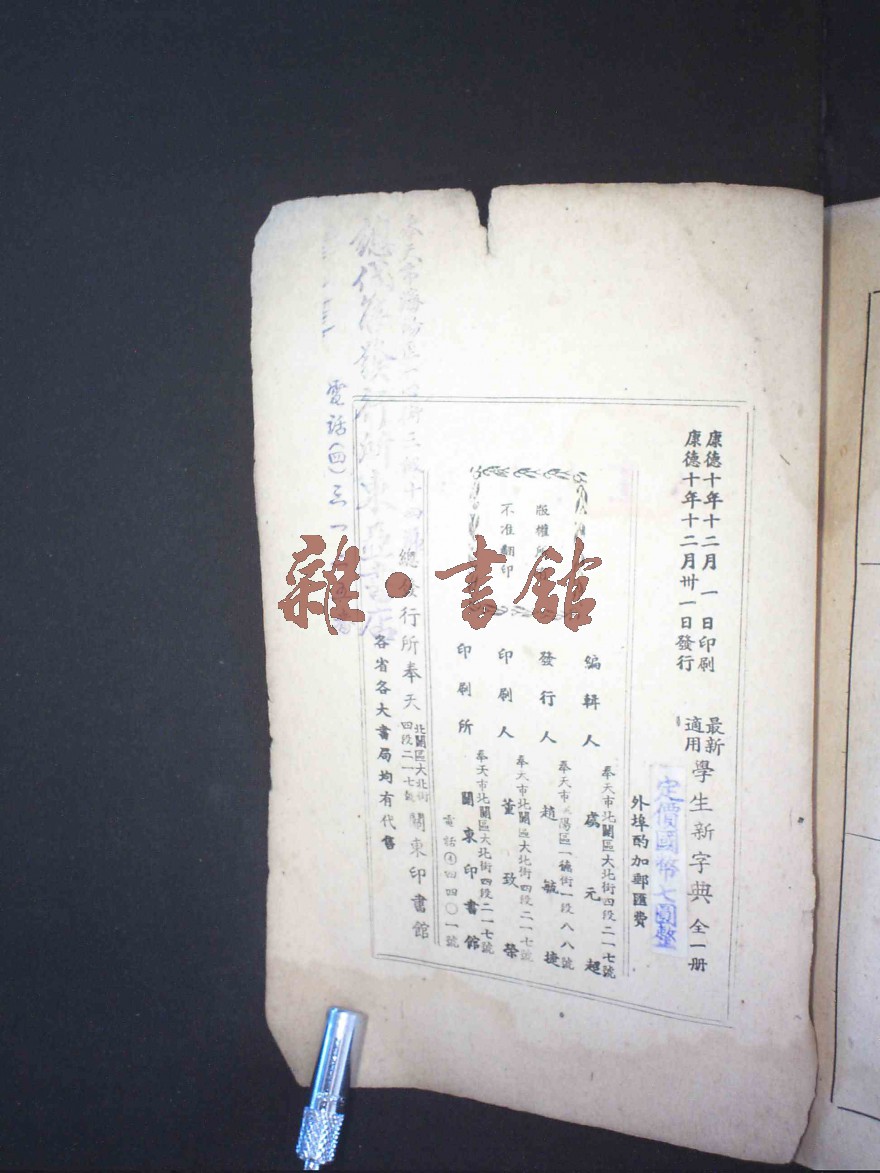 康德十年十二月一日印刷
康德十年十二月卅一日發行
最新
適用
學生新字典 全一册
定價國幣七圓整
外埠酌加郵匯費
版權所
不准翻印
編輯人
奉天市北關區大北街四段二一七號
虞元超
發行人
奉天市瀋陽區一德街一段八八號
趙毓捷
印刷人
奉天市北關區大北街四段二一七號
董致榮
印刷所
奉天市北關區大北街四段二一七號
關東印書館
電話④四四〇一號
總發行所奉天
北關區大北街
四段二一七號
關東印書館
各省各大書局均有代售
奉天市瀋陽區
三段十四
總代發行所東亞書店
電話(四)三一
雜·書館